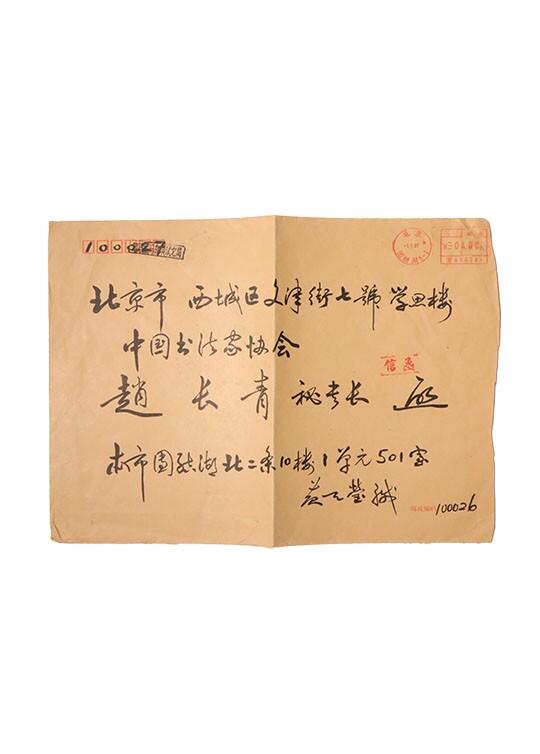 100027
北京市 西城区文津街七號 学思楼
中国书法家协会
信函
趙 长 青 秘书长 启
本市團结湖北二条10楼1单元501室
苏士瑩缄
邮政编码 100026